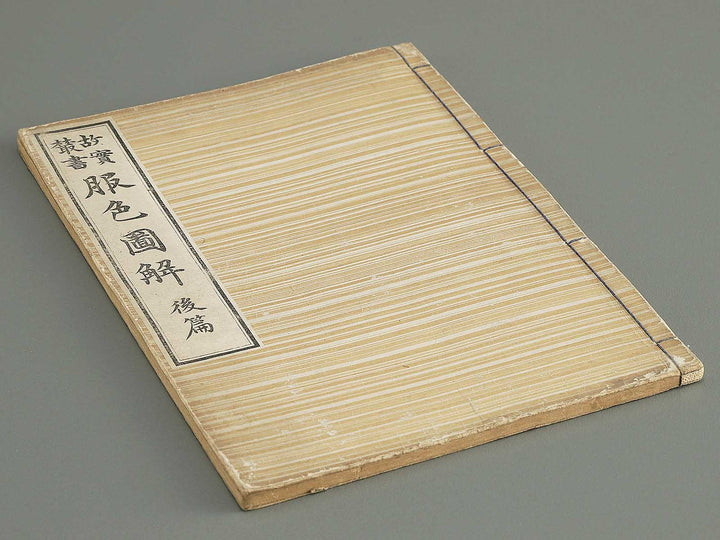 故實叢書
服色圖解
後篇